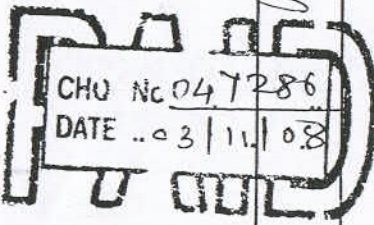 CHU No 047286
DATE ..03/11/08